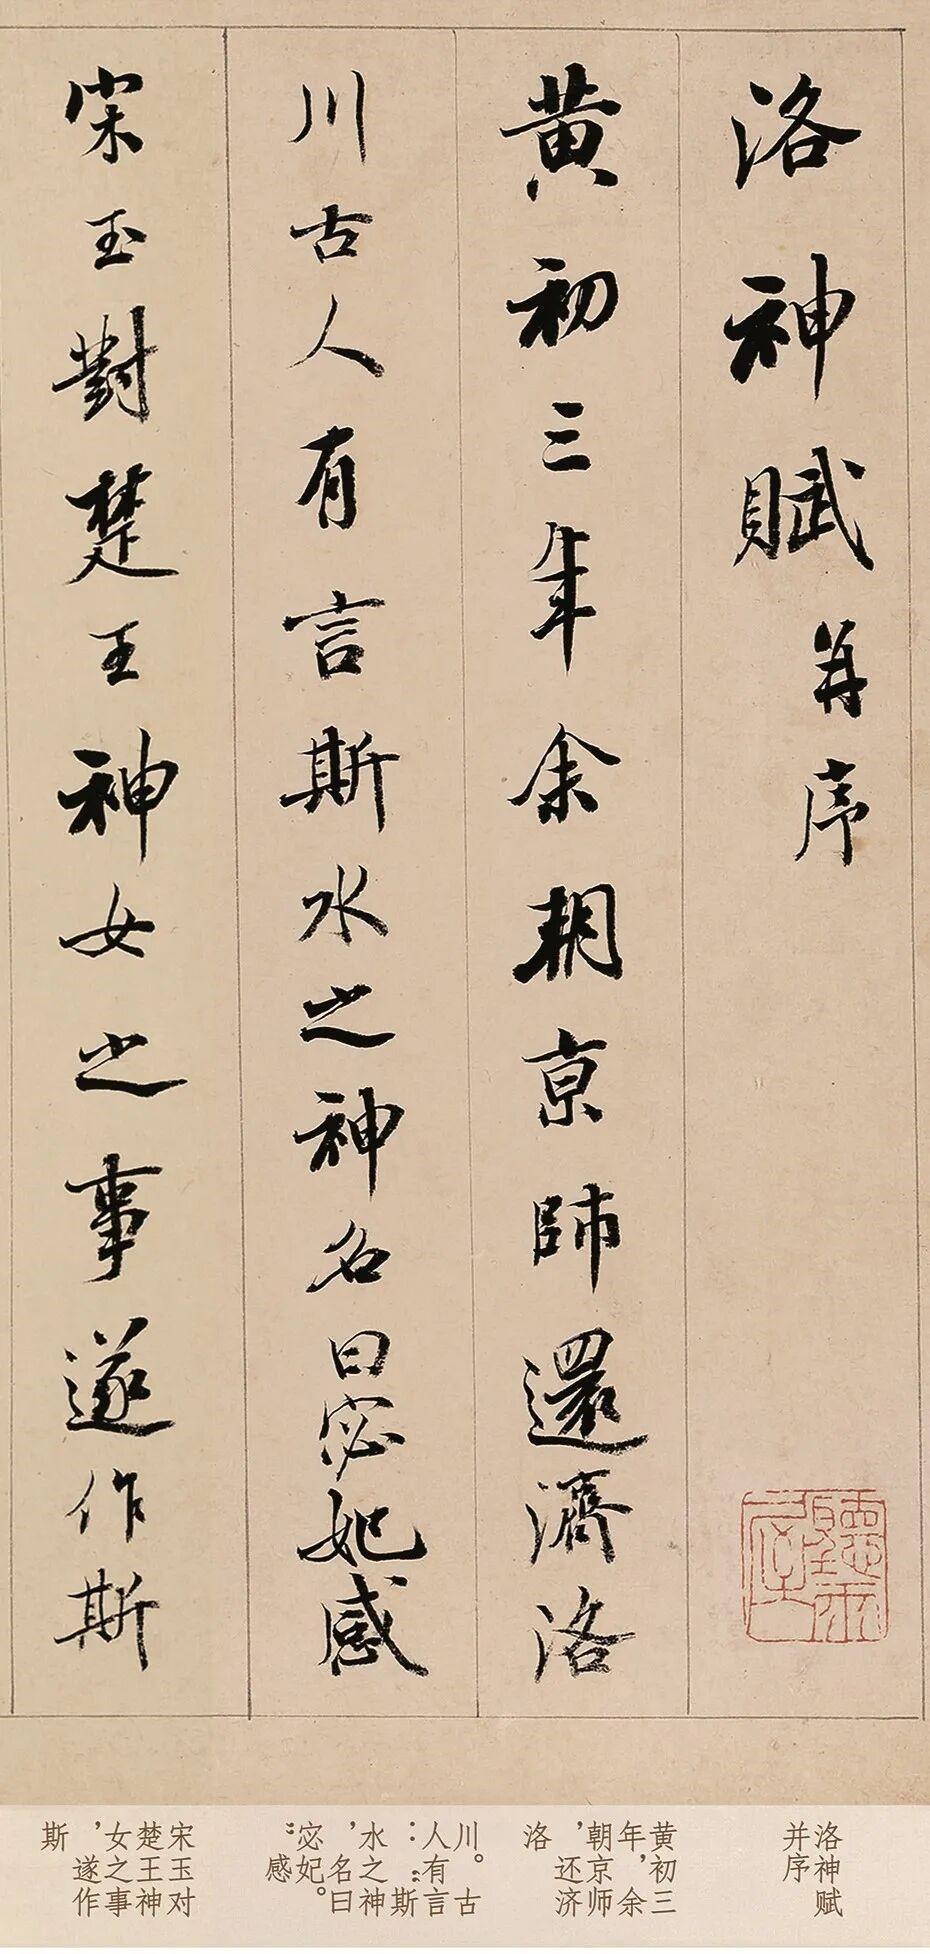 洛神賦并序
黄初三年余朝京師還濟洛
川古人有言斯水之神名曰宓妃感
宋玉對楚王神女之事遂作斯
聽雨屋
洛神赋
并序
黄初三
年，余
朝京师
，还济
洛
川。古
人有言
：“斯
水之神
，名曰
宓妃。
”感
宋玉对
楚王神
女之事
，遂作
斯